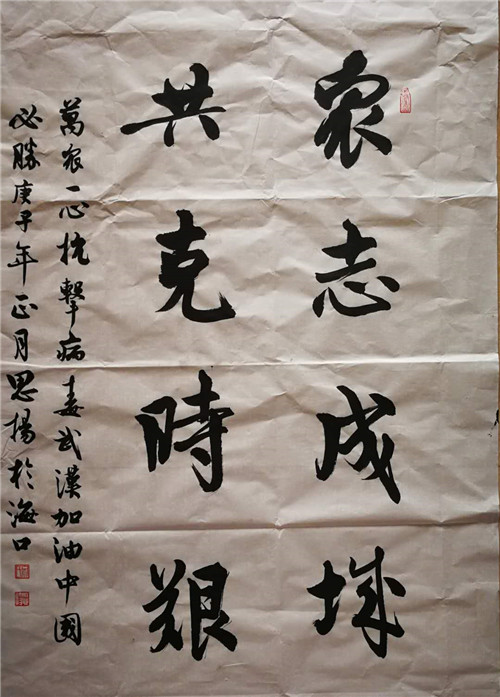 眾志成城
共克時艱
萬眾一心抗擊病毒武漢加油中國
必勝庚子年正月思揚於海口